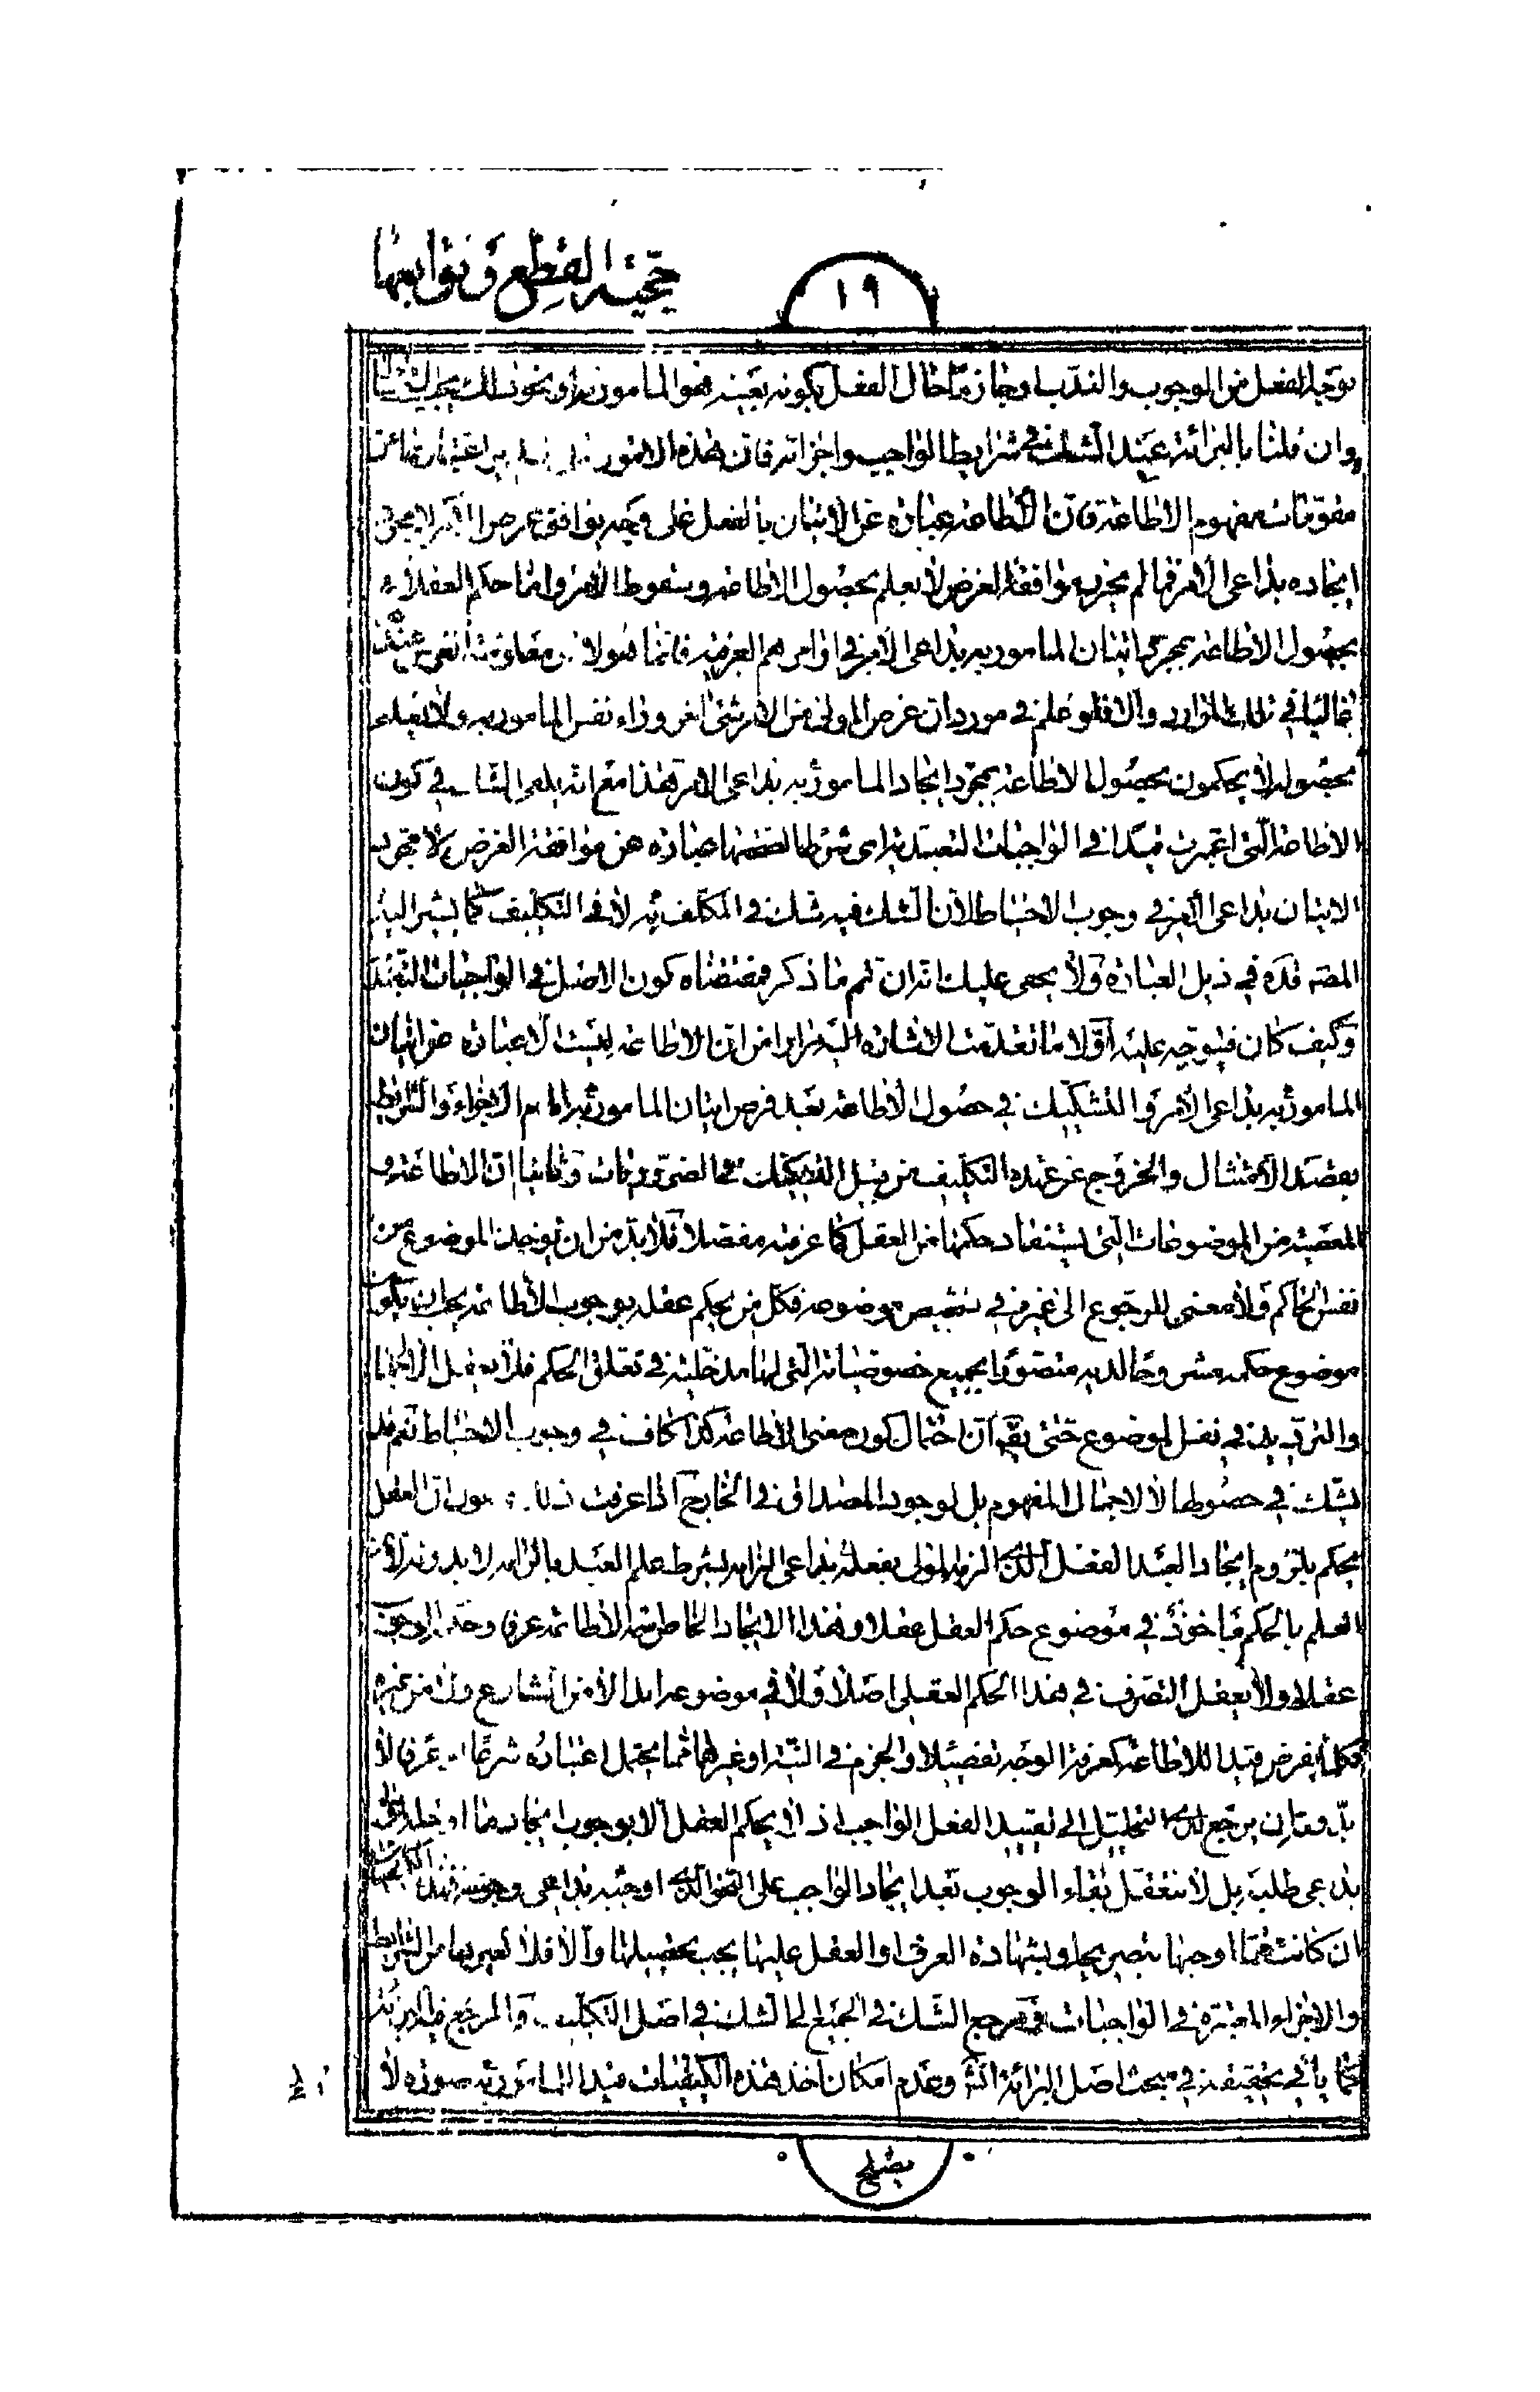 حجية القطع و توابعها
١٩
بوجه الفعل من الوجوب والندب او جازما حال الفعل بكونه بعينه هو المامور به او نحو ذلك يجب الاتيان
وان قلنا بالبرائة عند الشك في شرايط الواجب واجزائه فان هذه الامور
مقومات مفهوم الاطاعة فان الاطاعة عبارة عن الاتيان بالفعل على وجه يوافق غرض الامر لا مجرد
ايجاده بداعي الامر فما لم يحرز موافقة الغرض لا يعلم بحصول الاطاعة وسقوط الامر واما حكم العقلاء
بحصول الاطاعة بمجرد اتيان المامور به بداعي الامر في اوامرهم العرفية فانما هو لاجل معلومية الغرض عندهم
غالبا في تلك الموارد والا فلو علم في مورد ان غرض المولى من الامر شيء اخر وراء نفس المامور به ولا يعلم
بحصوله لا يحكمون بحصول الاطاعة بمجرد ايجاد المامور به بداعي الامر هذا مع انه يكفي الشك في كون
الاطاعة التي اعتبرت قيدا في الواجبات التعبدية اي شرطا لصحتها عبارة عن موافقة الغرض لا مجرد
الاتيان بداعي الامر في وجوب الاحتياط لان الشك فيه شك في المكلف به لا في التكليف كما يشير اليه
المصنف قده في ذيل العبارة ولا يخفى عليك انه ان تم ما ذكر فمقتضاه كون الاصل في الواجبات التعبد
وكيف كان فيتوجه عليه اولا ما تقدمت الاشارة اليه مرارا من ان الاطاعة ليست الا عبارة عن اتيان
المامور به بداعي الامر والتشكيك في حصول الاطاعة بعد فرض اتيان المامور به الاجزاء والشرايط
بقصد الامتثال والخروج عن عهدة التكليف من قبيل التشكيك في الضروريات وثانيا ان الاطاعة و
المعصية من الموضوعات التي يستفاد حكمها من العقل كما عرفته مفصلا فلا بد من ان يؤخذ الموضوع من
نفس الحاكم ولا معنى للرجوع الى غيره في تشخيص موضوعه فكل من يحكم عقله بوجوب الاطاعة يجب ان يكون
موضوع حكمه مشروحا لديه متصورا بجميع خصوصياته التي لها مدخلية في تعلق الحكم فلا يعقل الاجمال
والترديد في نفس الموضوع حتى يقم ان احتمال كون معنى الاطاعة كذا كاف في وجوب الاحتياط نعم قد
يشك في حصولها لا لاجمال المفهوم بل لوجود المصداق في الخارج اذا عرفت ذلك ان العقل
يحكم بلزوم ايجاد العبد الفعل الذي الزمه المولى بفعله بداعي الزامه بشرط علم العبد بالزامه لا بدونه لان
العلم بالحكم ماخوذ في موضوع حكم العقل عقلا وهذا الايجاد الخاص اطاعة عرفا وحكمه الوجوب
عقلا ولا يعقل التصرف في هذا الحكم العقلي اصلا ولا في موضوعه ابدا لا من الشارع ولا من غيره
فكلما يفرض قيدا للاطاعة كمعرفة الوجه تفصيلا والجزم في النية او غيرهما مما يحتمل اعتباره شرعا او عرفا لا
بد وان يرجع لدى التحليل الى تقييد الفعل الواجب اذ لا يحكم العقل الا بوجوب ايجاد ما اوجبه المولى
بداعي طلبه بل لا نتعقل بقاء الوجوب بعد ايجاد الواجب على النحو الذي اوجبه بداعي وجوبه فهذه الكيفيات
ان كانت مما اوجبها بتصريحه او بشهادة العرف او العقل عليها يجب تحصيلها والا فلا كغيرها من الشرايط
والاجزاء المعتبرة في الواجبات فمرجع الشك في الجميع الى الشك في اصل التكليف والمرجع فيه البرائة
كما ياتي تحقيقه في مبحث اصل البرائة انش وعدم امكان اخذ هذه الكيفيات قيدا للمامور به صورة لا
يصلح